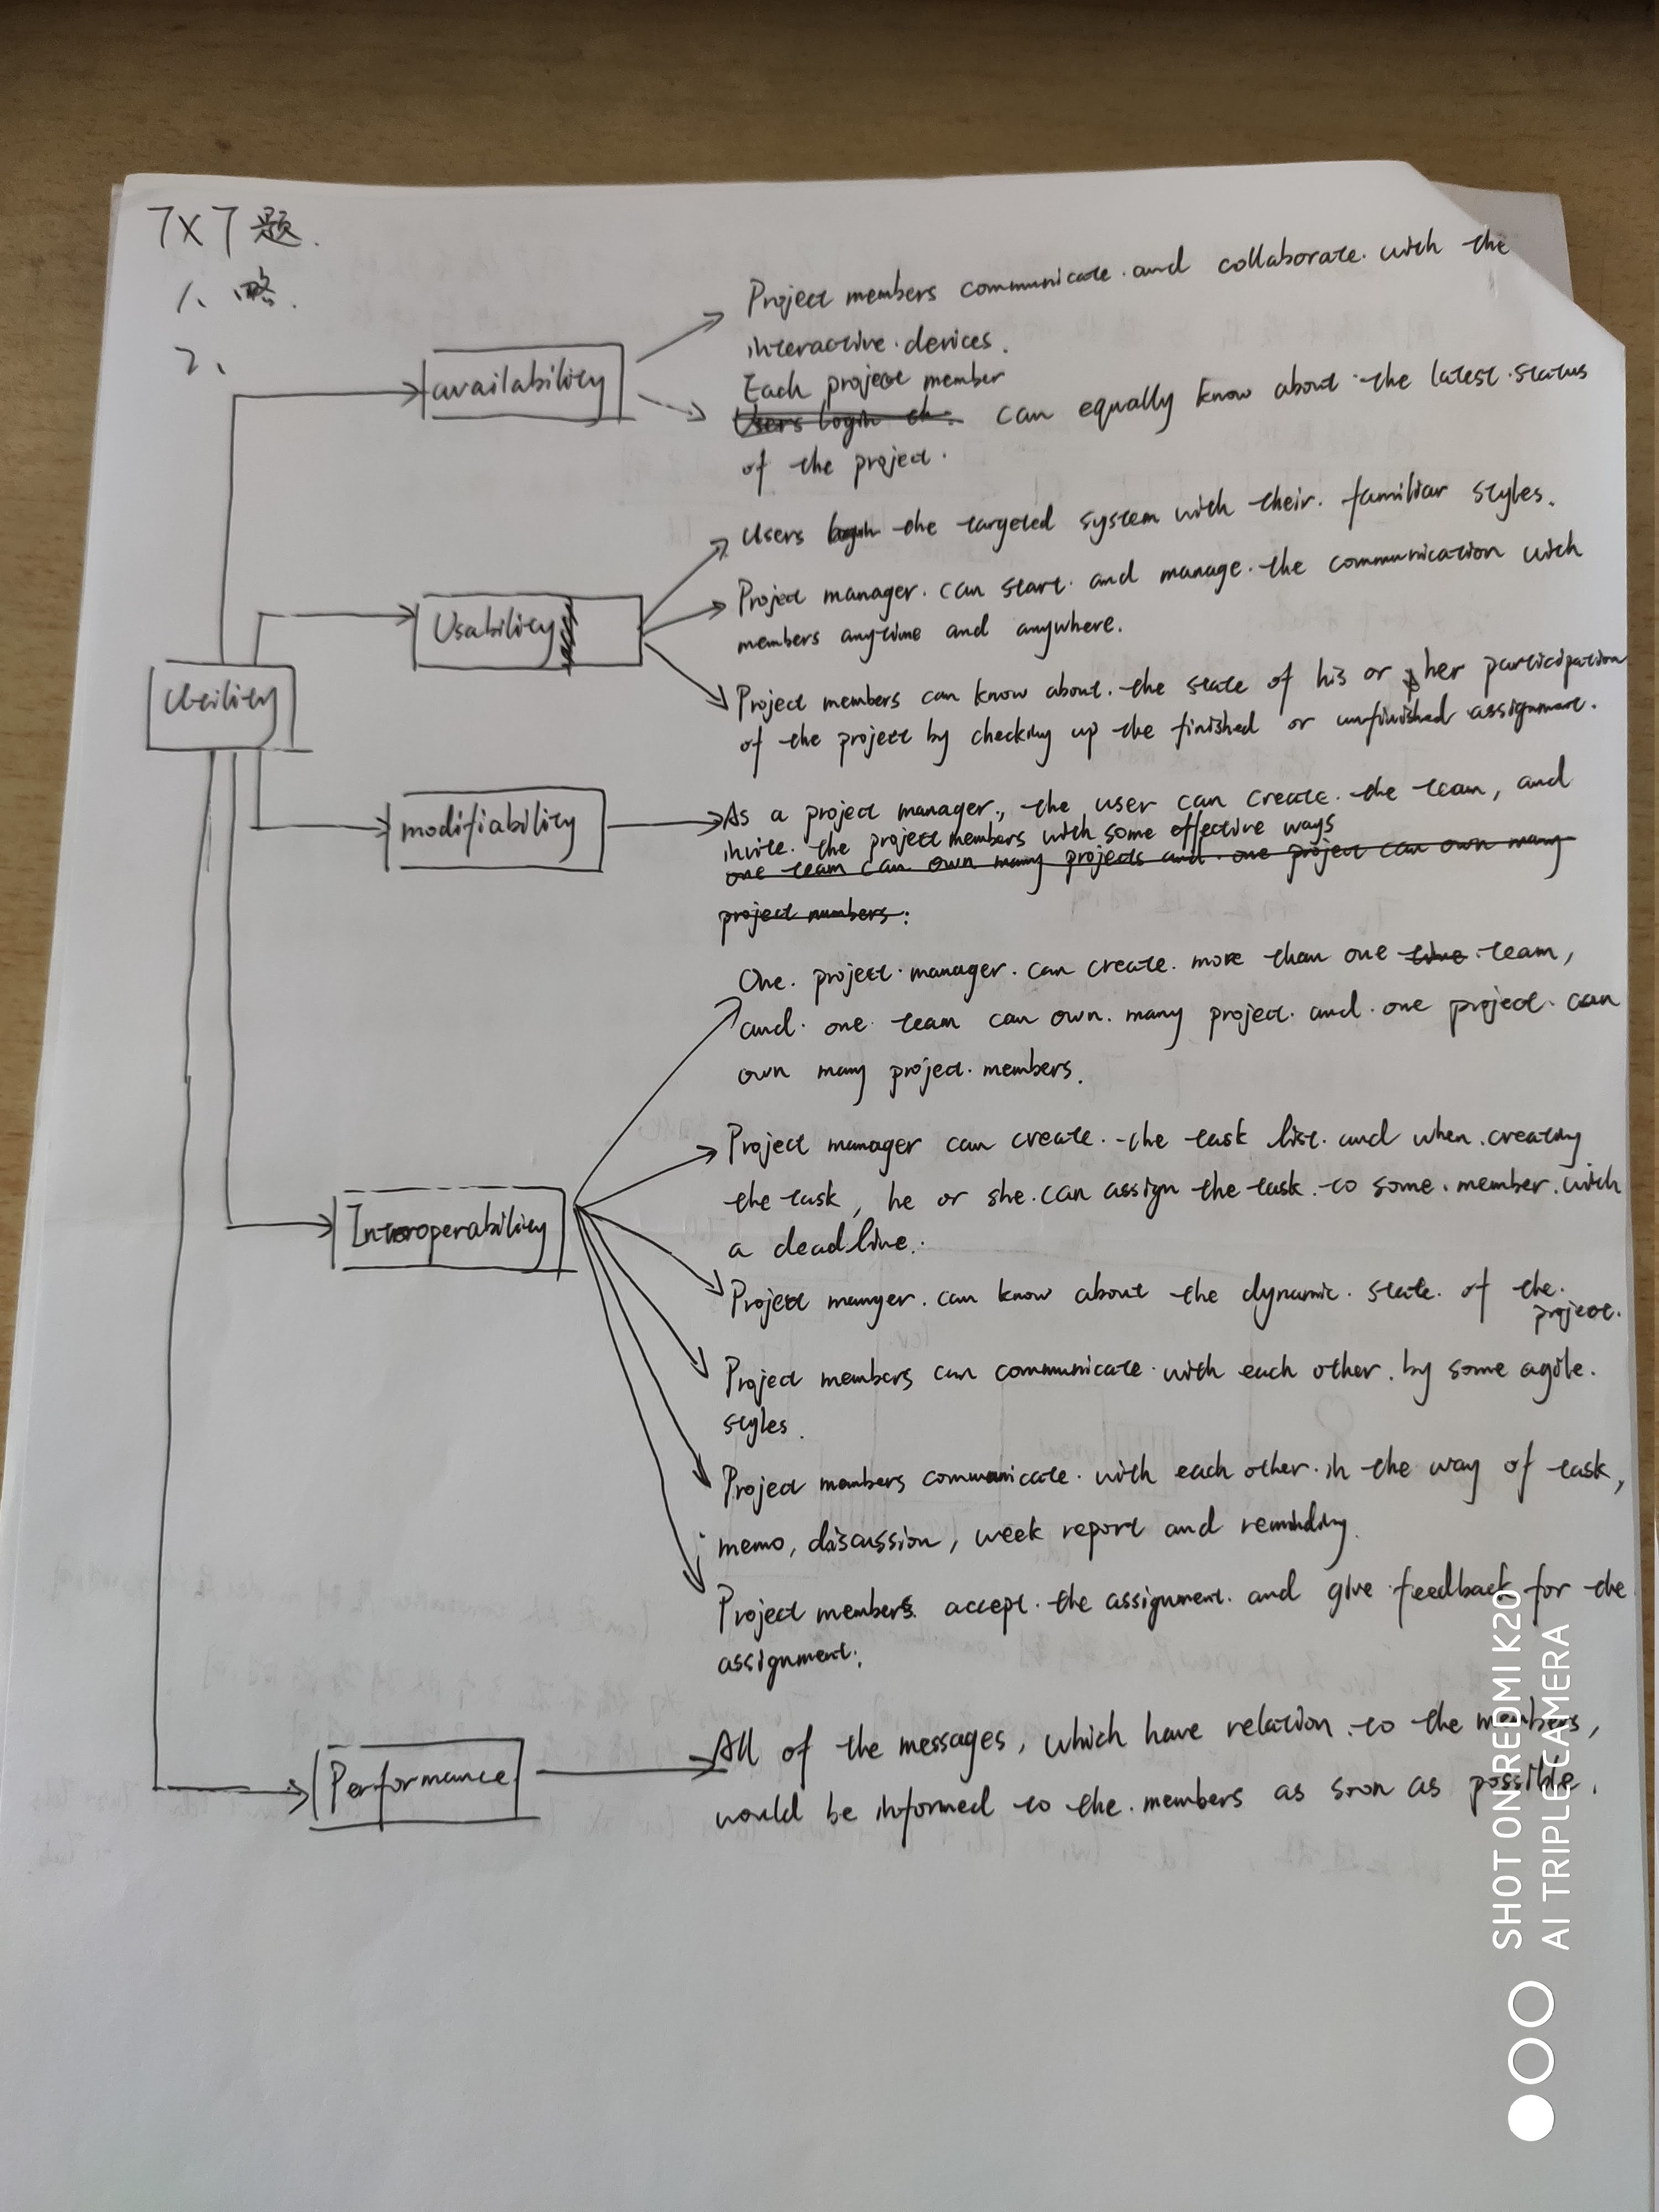 7X7题.
1、略.
2、
Project members communicate and collaborate with the
interactive devices.
availability
Each project member
Users login can equally know about the latest status
of the project.
Users login the targeted system with their familiar styles.
Project manager can start and manage the communication with
members anytime and anywhere.
Usability
Utility
Project members can know about the state of his or her participation
of the project by checking up the finished or unfinished assignment.
modifiability
As a project manager, the user can create the team, and
invite the project members with some effective ways
one team can own many projects and one project can own many
project numbers.
One project manager can create more than one time team,
and one team can own many project and one project can
own many project members.
Project manager can create the task list and when creating
the task, he or she can assign the task to some member with
a deadline.
Interoperability
Project manger can know about the dynamic state of the
project.
Project members can communicate with each other by some agile
styles.
Project members communicate with each other in the way of task,
memo, discussion, week report and reminding.
Project members accept the assignment and give feedback for the
assignment.
Performance
All of the messages, which have relation to the members,
would be informed to the members as soon as possible.
SHOT ON REDMI K20
AI TRIPLE CAMERA